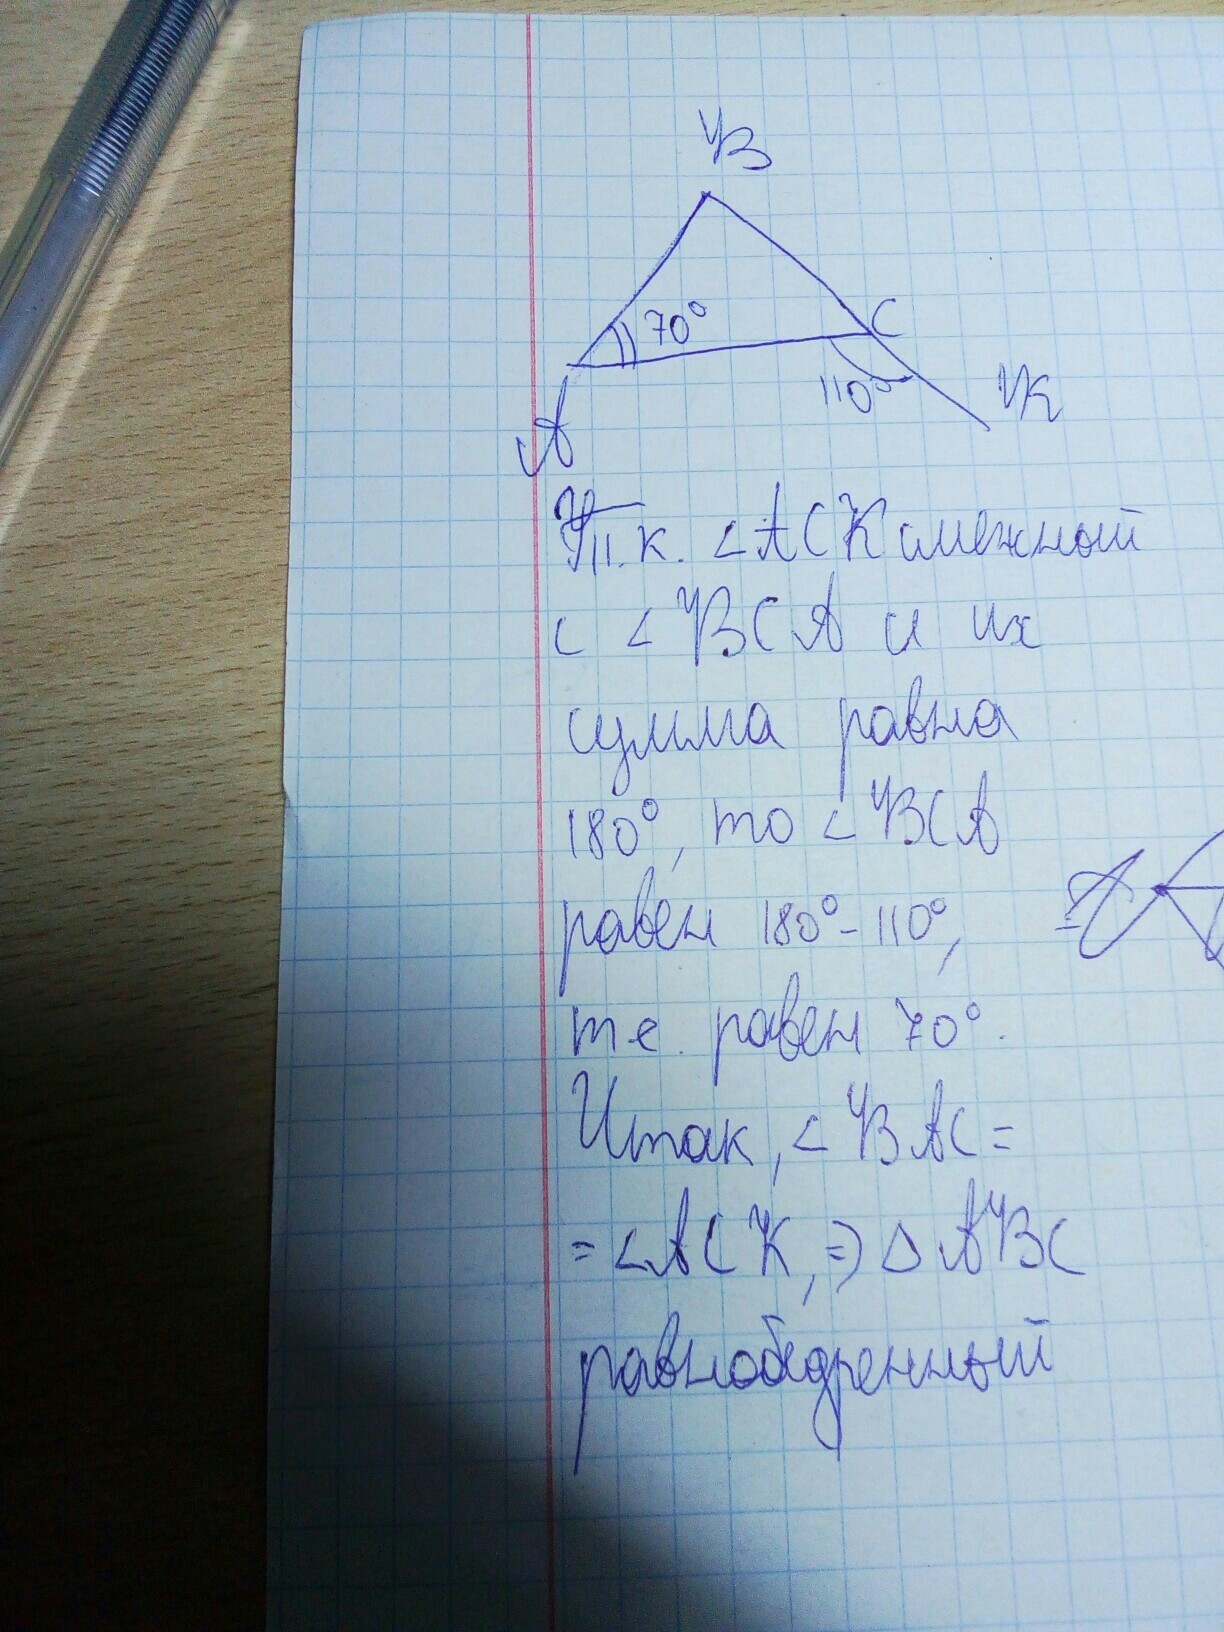 B
70°
C
110°
K
A
Т.к. ∠ACK смежный
с ∠BCA и их
сумма равна
180°, то ∠BCA
равен 180°-110°,
т.е. равен 70°.
Итак, ∠BAC=
=∠ACK, ⇒ △ABC
равнобедренный